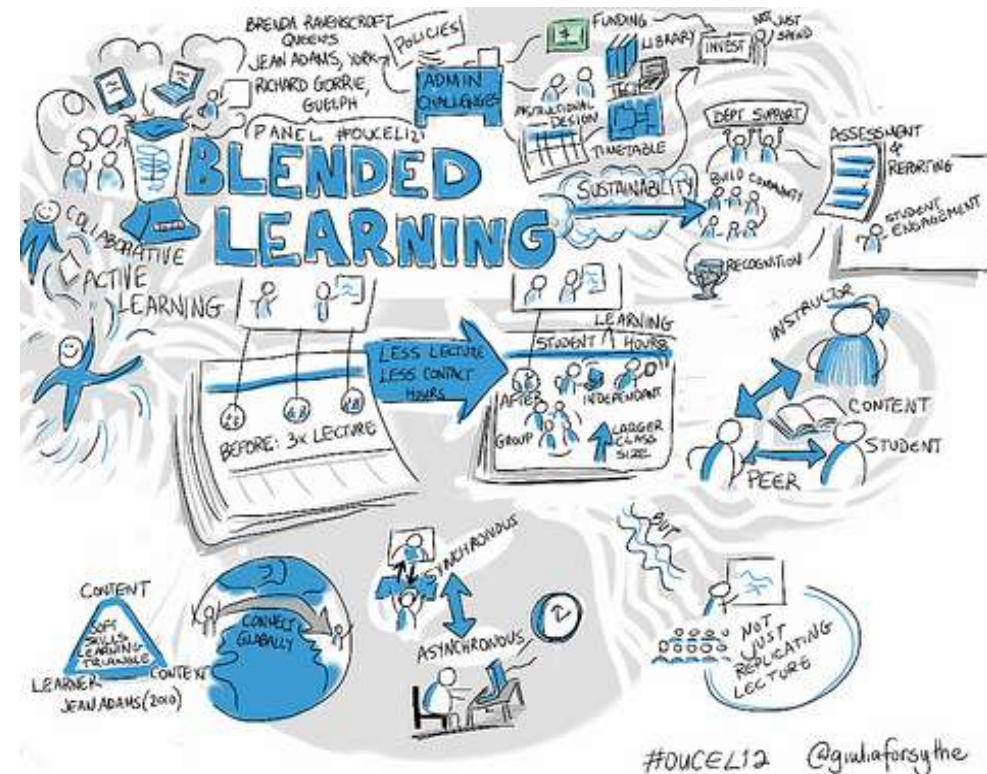 BRENDA RAVENSCROFT
QUEENS
JEAN ADAMS, YORK
RICHARD GORRIE,
GUELPH
PANEL #OUCEL12
POLICIES
ADMIN
CHALLENGES
FUNDING
LIBRARY
TECH
INSTRUCTIONAL
DESIGN
TIMETABLE
INVEST
NOT JUST
SPEND
BLENDED
LEARNING
SUSTAINABILITY
DEPT SUPPORT
BUILD COMMUNITY
RECOGNITION
ASSESSMENT
&
REPORTING
STUDENT
ENGAGEMENT
COLLABORATIVE
ACTIVE
LEARNING
BEFORE: 3x LECTURE
LESS LECTURE
LESS CONTACT
HOURS
LEARNING
STUDENT ^ HOURS
AFTER
INDEPENDANT
GROUP
LARGER
CLASS
SIZE
INSTRUCTOR
CONTENT
STUDENT
PEER
CONTENT
SOFT
SKILLS
LEARNING
TRIANGLE
LEARNER
CONTEXT
JEAN ADAMS (2010)
CONNECT
GLOBALLY
SYNCHRONOUS
ASYNCHRONOUS
BUT
NOT
JUST
REPLICATING
LECTURE
#OUCEL12 @giuliaforsythe